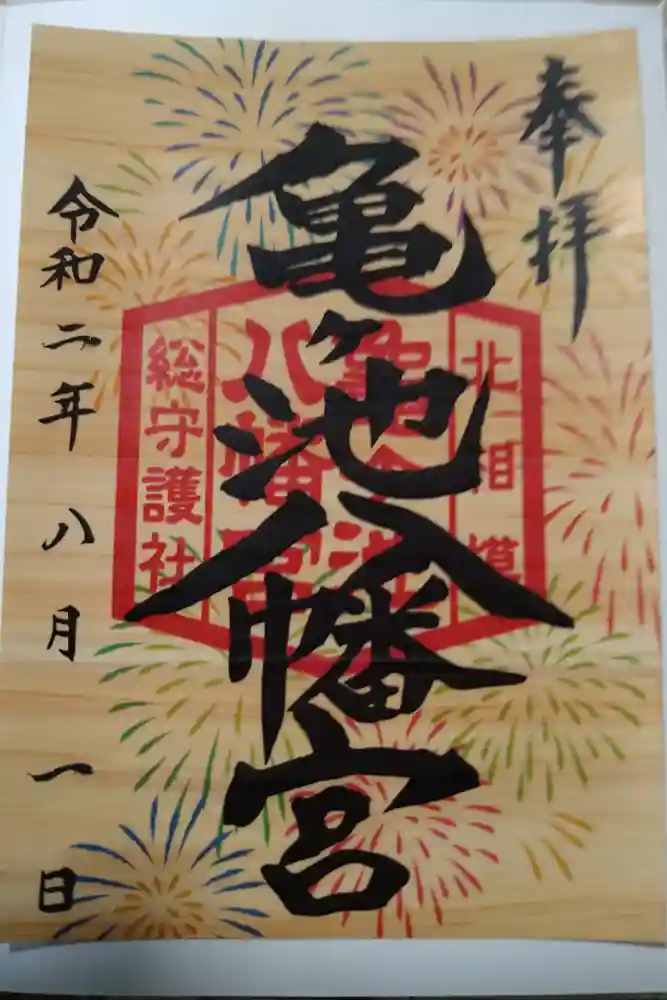 奉拝
北相模
亀ヶ池
八幡宮
総守護社
亀ヶ池八幡宮
令和二年八月一日